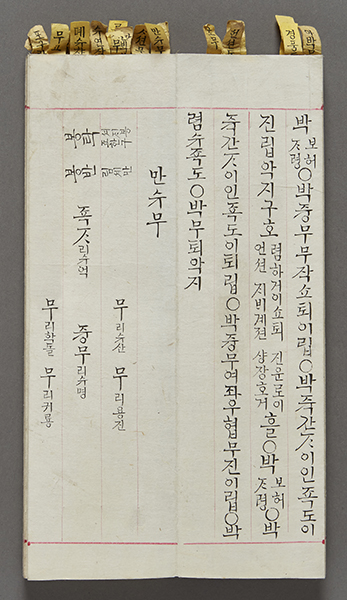 박 보허ᄌ령 ○박즁무무작쇼퇴이립○박쥭간ᄌ이인죡도이
진립악지구호 렴하거이쇼퇴 진운로이
언션지비계젼 상장호거 흘○박 보허ᄌ령 ○박
쥭간ᄌ이인죡도이퇴립○박즁무여좌우협무진이립○박
렴슈죡도○박무퇴악지
만슈무
무리슈산 무리용진
봉탁 봉반 죡ᄌ리슈억 즁무리슈명
무리학돌 무리귀룡